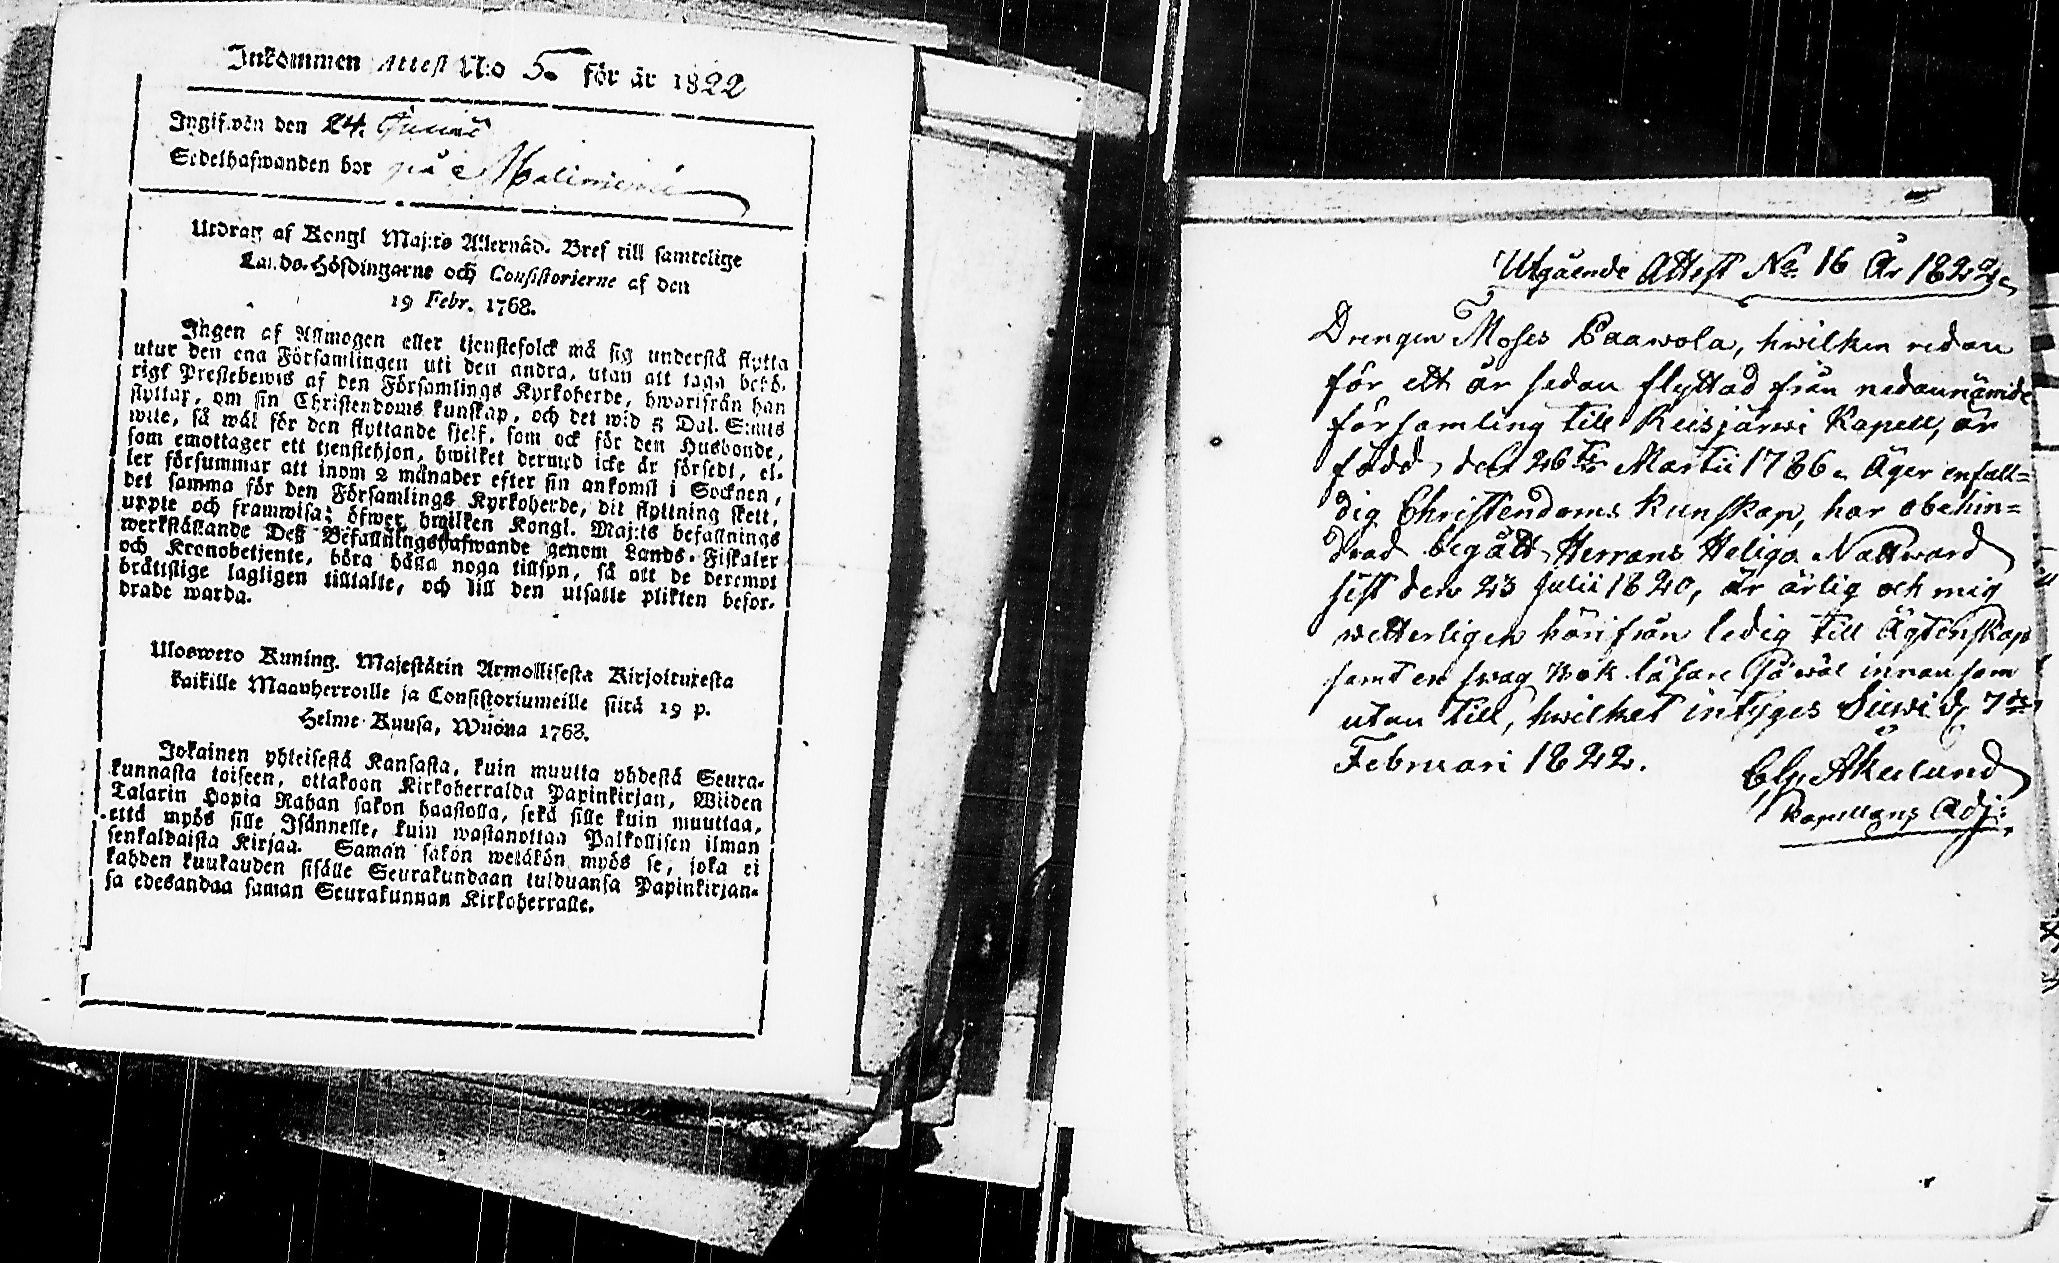 Inkommen Attest N:o 5. för år 1822
Ingifwen den 24. Junii
Sedelhafwanden bor på Maliniemi
Utdrag af Kongl Maj:ts Allernåd. Bref till samtelige
Lands-Höfdingarne och Consistorierne af den
19 Febr. 1768.
Ingen af Allmogen eller tjenstefolck må sig understå flytta
utur den ena Församlingen uti den andra, utan att taga behö-
rigt Prestebewis af den Församlings Kyrkoherde, hwarifrån han
flyttar, om sin Christendoms kunskap, och det wid 5 Dal. S:mts
wite, så wäl för den flyttande sjelf, som ock för den Husbonde,
som emottager ett tjenstehjon, hwilket dermed icke är försedt, el-
ler försummar att inom 2 månader efter sin ankomst i Socknen,
det samma för den Församlings Kyrkoherde, dit flyttning skett,
uppte och framwisa; öfwer hwilken Kongl. Maj:ts befallnings
werkställande Deß Befallningshafwande genom Lands-Fiskaler
och Kronobetjente, böra hålla noga tillsyn, så att de deremot
bråttslige lagligen tilltalte, och till den utsatte plikten befor-
drade warda.
Uloswero Kuning. Majestätin Armollisesta Kirjoituxesta
kaikille Maanherroille ja Consistoriumeille siitä 19 p.
Helme-Kuusa, Wuona 1768.
Jokainen yhteisestä Kansasta, kuin muutta yhdestä Seura-
kunnasta toiseen, ottakoon Kirkoherralda Papinkirjan, Wiiden
Talarin Hopia Rahan sakon haastolla, sekä sille kuin muuttaa,
että myös sille Isännelle, kuin wastanottaa Palkollisen ilman
senkaldaista Kirjaa. Saman sakon wetäkön myös se, joka ei
kahden kuukauden sisälle Seurakundaan tulduansa Papinkirjan-
sa edesandaa saman Seurakunnan Kirkoherralle.
Utgående Attest No. 16 År 1822.
Drengen Moses Paawola, hwilken redan
för ett år sedan flyttad från nedannämde
församling till Reisjärwi Kapell, är
född den 26te Martii 1786. Äger enfall=
dig Christendoms Kunskap, har obehin=
drad begått Herrans Heliga Nattward
sist den 23 Julii 1820, är ärlig och mig
wetterligen härifrån ledig till Ägtenskap
samt en swag bok läsare så wäl innan som
utan till, hwilket intyges Siewi d. 7de
Februari 1822.
Åkerlund
Kapellans Adj: